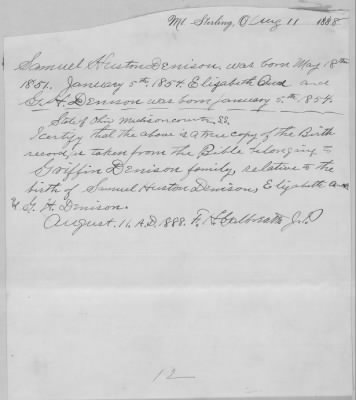 Mt Sterling, O Aug 11 1888
Samuel Huston Denison was born May 18th
1851. January 5th. 1854. Elizabeth Ann and
G. H. Denison was born january 5th 1854.
State of Ohio Madison county, SS.
I certify that the above is a true copy of the Birth
record, is taken from the Bible belonging to
Griffin Denison family, relative to the
birth of Samuel Huston Denison, Elizabeth Ann
& G. H. Denison.
August. 11. A.D. 1888. F. H. Galbreath J.P.
12